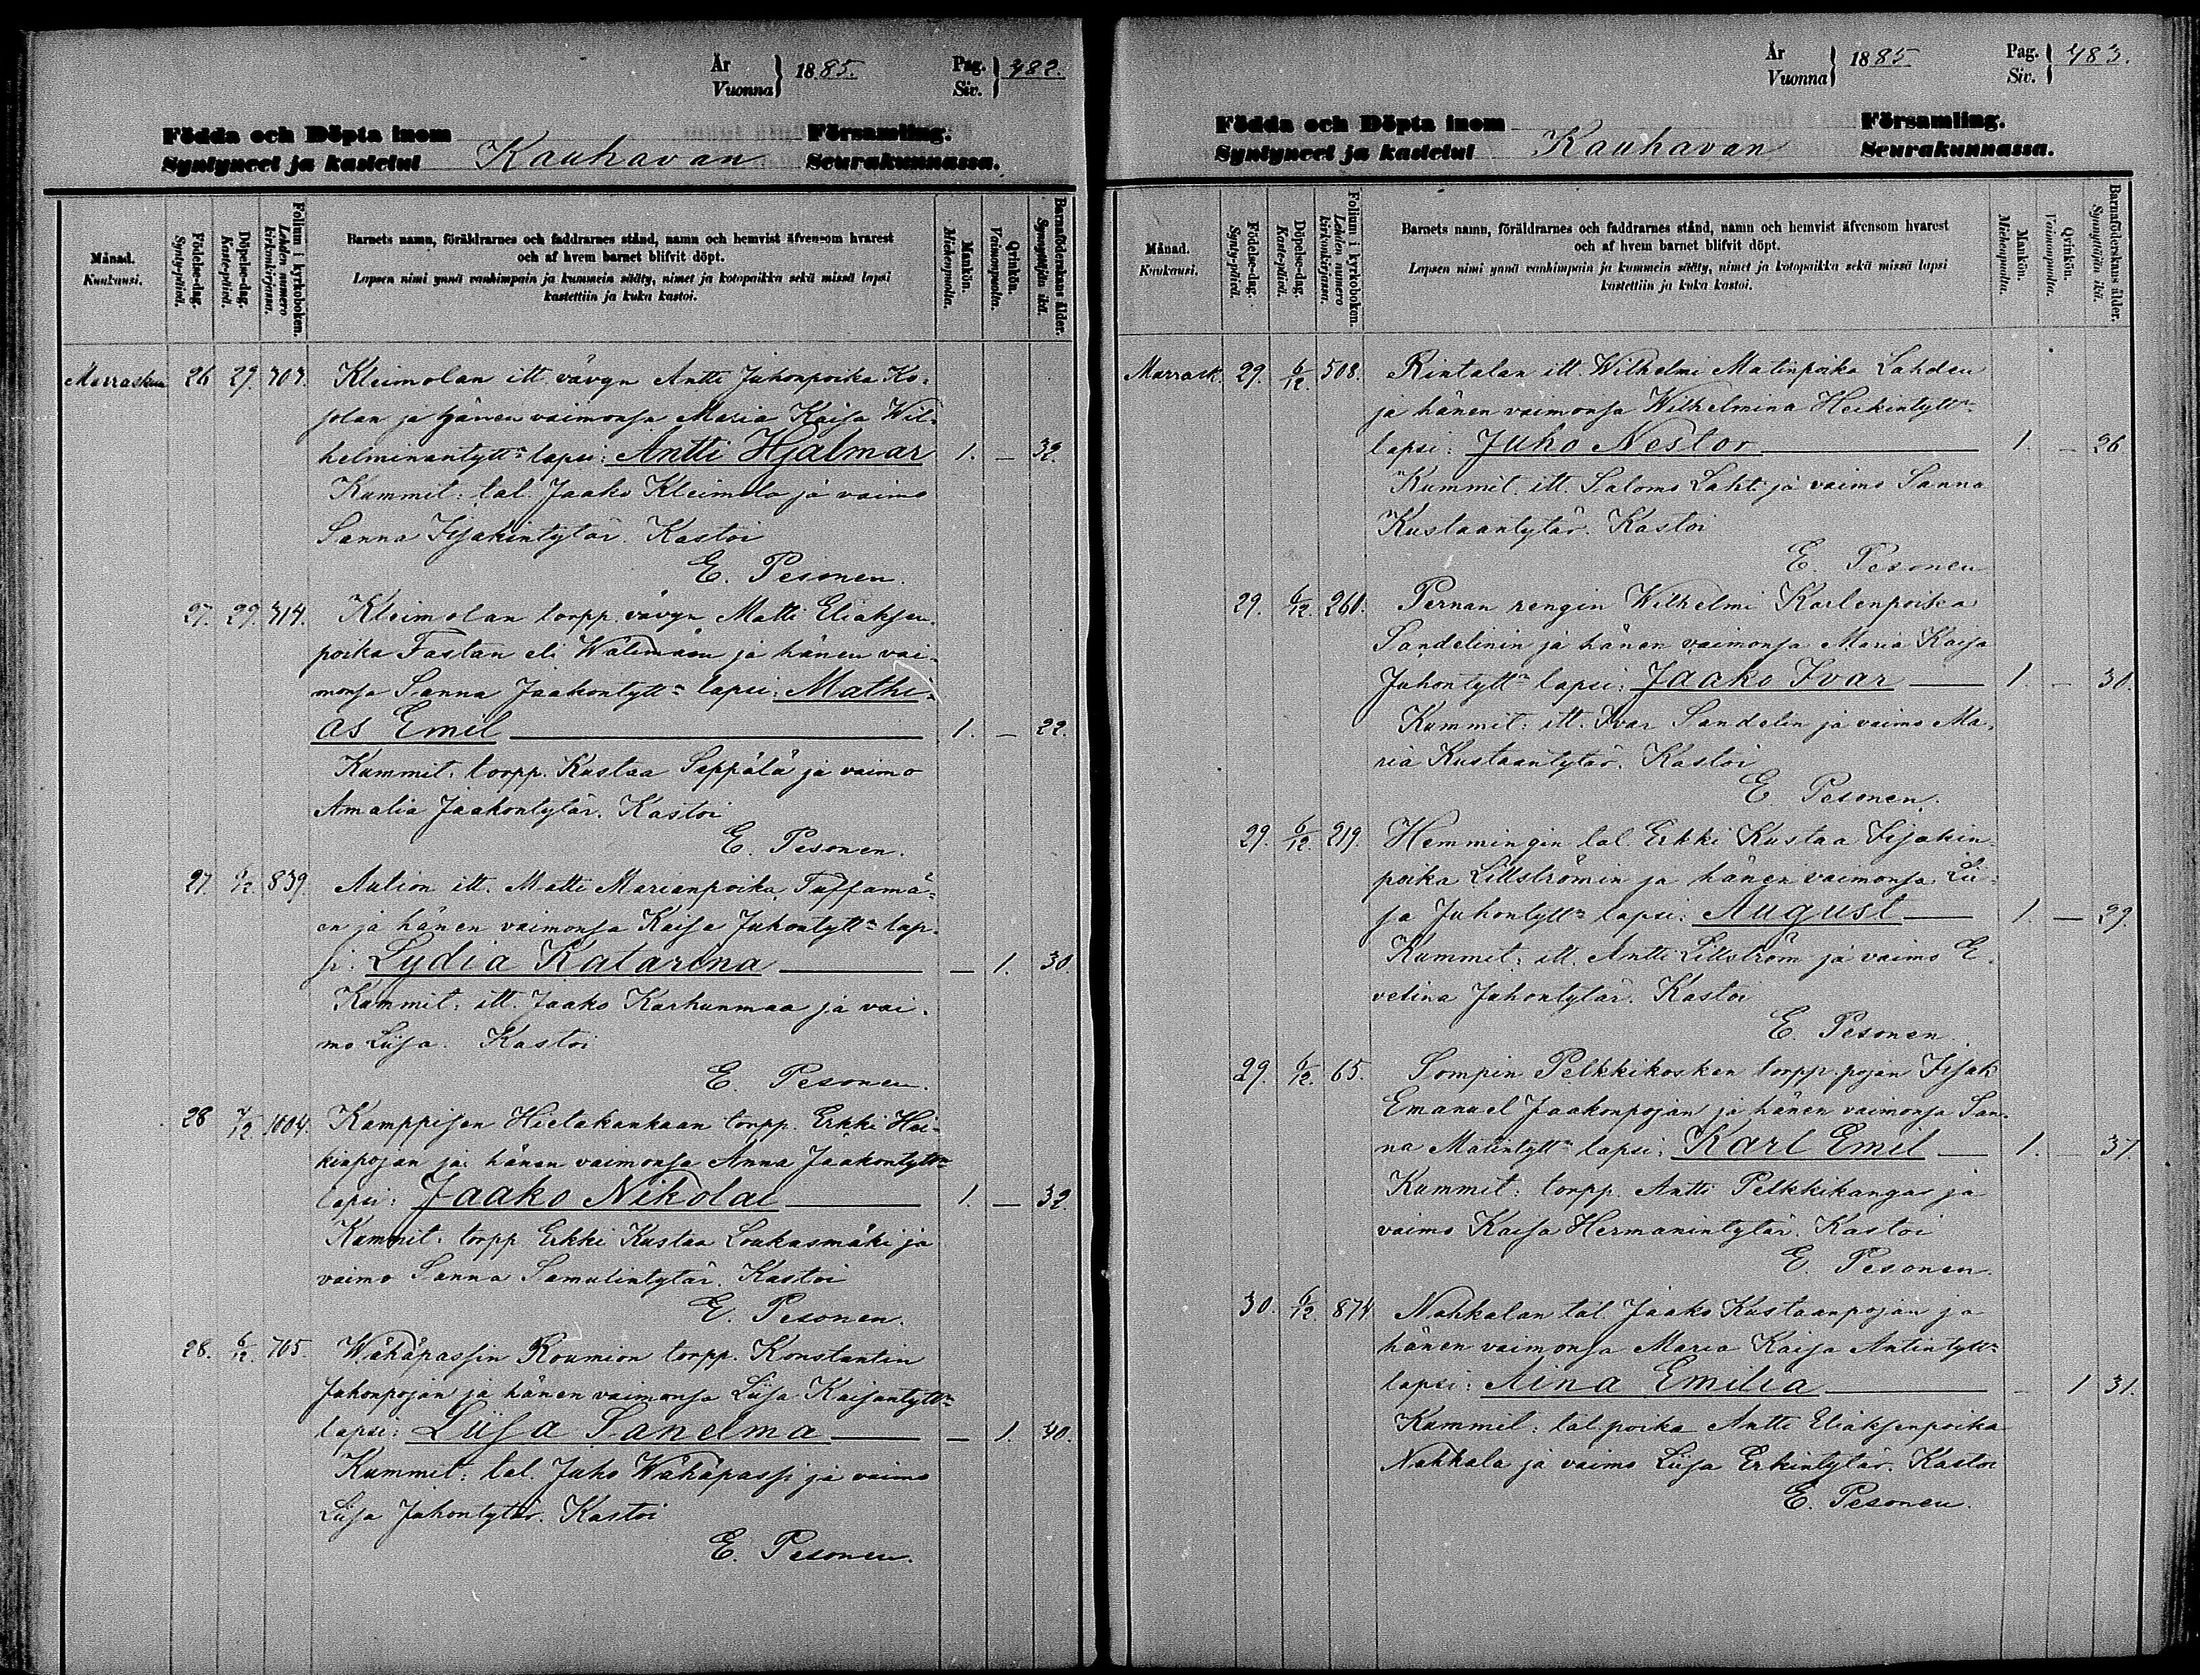 År
Vuonna
1885.
Pag.
Siv.
482.
Födda och Döpta inom
Syntyneet ja kastetut
Kauhavan
Församling.
Seurakunnassa.
Månad.
Kuukausi.
Födelse-dag.
Synty-päivä.
Döpelse-dag.
Kaste-päivä.
Folium i kyrkoboken.
Lehden numero kirkonkirjassa.
Barnets namn, föräldrarnes och faddrarnes stånd, namn och hemvist äfvensom hvarest
och af hvem barnet blifvit döpt.
Lapsen nimi ynnä vanhimpain ja kummein sääty, nimet ja kotopaikka sekä missä lapsi
kastettiin ja kuka kastoi.
Mankön.
Miehenpuolia.
Qvinkön.
Vaimonpuolia.
Barnaföderskans ålder.
Synnyttäjän ikä.
Marraskuu 26 29. 707. Kleimolan itt. vävyn Antti Juhonpoika Ko-
jolan ja hänen vaimonsa Maria Kaisa Wil-
helminantytt:n lapsi: Antti Hjalmar 1. — 32.
Kummit: tal. Jaako Kleimola ja vaimo
Sanna Iisakintytär. Kastoi
E. Pesonen.
27. 29. 414. Kleimolan torpp. vävyn Matti Eliaksen-
poika Fastan eli Wälimäen ja hänen vai-
monsa Sanna Jaakontytt:n lapsi: Mathi-
as Emel 1. — 22.
Kummit: torpp. Kustaa Seppälä ja vaimo
Amalia Jaakontytär. Kastoi
E. Pesonen.
27. 6/12. 839. Aution itt. Matti Marianpoika Tussamä-
en ja hänen vaimonsa Kaisa Juhontytt:n lap-
si: Lydia Katarina — 1. 30.
Kummit: itt. Jaako Karhunmaa ja vai-
mo Liisa. Kastoi
E. Pesonen.
28 4/12. 1004. Kamppisen Hietakankaan torpp. Erkki Hei-
kinpojan ja hänen vaimonsa Anna Jaakontytt:n
lapsi: Jaako Nikolai 1. — 32.
Kummit: torpp Erkki Kustaa Loukasmäki ja
vaimo Sanna Samulintytär. Kastoi
E. Pesonen.
28. 6/12. 765. Wähäpassin Roumion torpp. Konstantin
Juhonpojan ja hänen vaimonsa Liisa Kaisantytt:n
lapsi: Liisa Sanelma — 1. 40.
Kummit: tal. Juho Wähäpassi ja vaimo
Liisa Juhontytär. Kastoi
E. Pesonen.
År
Vuonna
1885
Pag.
Siv.
483.
Födda och Döpta inom
Syntyneet ja kastetut
Kauhavan
Församling.
Seurakunnassa.
Månad.
Kuukausi.
Födelse-dag.
Synty-päivä.
Döpelse-dag.
Kaste-päivä.
Folium i kyrkoboken.
Lehden numero kirkonkirjassa.
Barnets namn, föräldrarnes och faddrarnes stånd, namn och hemvist äfvensom hvarest
och af hvem barnet blifvit döpt.
Lapsen nimi ynnä vanhimpain ja kummein sääty, nimet ja kotopaikka sekä missä lapsi
kastettiin ja kuka kastoi.
Mankön.
Miehenpuolia.
Qvinkön.
Vaimonpuolia.
Barnaföderskans ålder.
Synnyttäjän ikä.
Marrask. 29. 6/12. 508. Rintalan itt. Wilhelmi Matinpoika Lahden
ja hänen vaimonsa Wilhelmina Heikintytt:n
lapsi: Juho Nestor 1. — 26
Kummit. itt. Salomo Lahti ja vaimo Sanna
Kustaantytär. Kastoi
E. Pesonen
29. 6/12. 260. Pernan rengin Wilhelmi Karlenpoika
Sandelinin ja hänen vaimonsa Maria Kaisa
Juhontytt:n lapsi: Jaako Ivar 1. — 30.
Kummit: itt. Ivar Sandelin ja vaimo Ma-
ria Kustaantytär. Kastoi
E. Pesonen.
29. 6/12. 219. Hemmingin tal. Erkki Kustaa Iisakin-
poika Lillströmin ja hänen vaimonsa Lii-
sa Juhontytt:n lapsi: August 1. — 29.
Kummit: itt. Antti Lillström ja vaimo E-
velina Juhontytär. Kastoi
E. Pesonen
29. 6/12. 65. Sompin Pelkkikosken torpp. pojan Iisak
Emanuel Jaakonpojan ja hänen vaimonsa San-
na Matintytt:n lapsi: Karl Emil 1. — 37.
Kummit: torpp. Antti Pelkkikangas ja
vaimo Kaisa Hermanintytär. Kastoi
E. Pesonen.
30. 6/12. 874 Nahkalan tal. Jaako Kustaanpojan ja
hänen vaimonsa Maria Kaisa Antintytt:n
lapsi: Aina Emilia — 1 31.
Kummit: tal. poika Antti Eliaksenpoika
Nahkala ja vaimo Liisa Erkintytär. Kastoi
E. Pesonen.